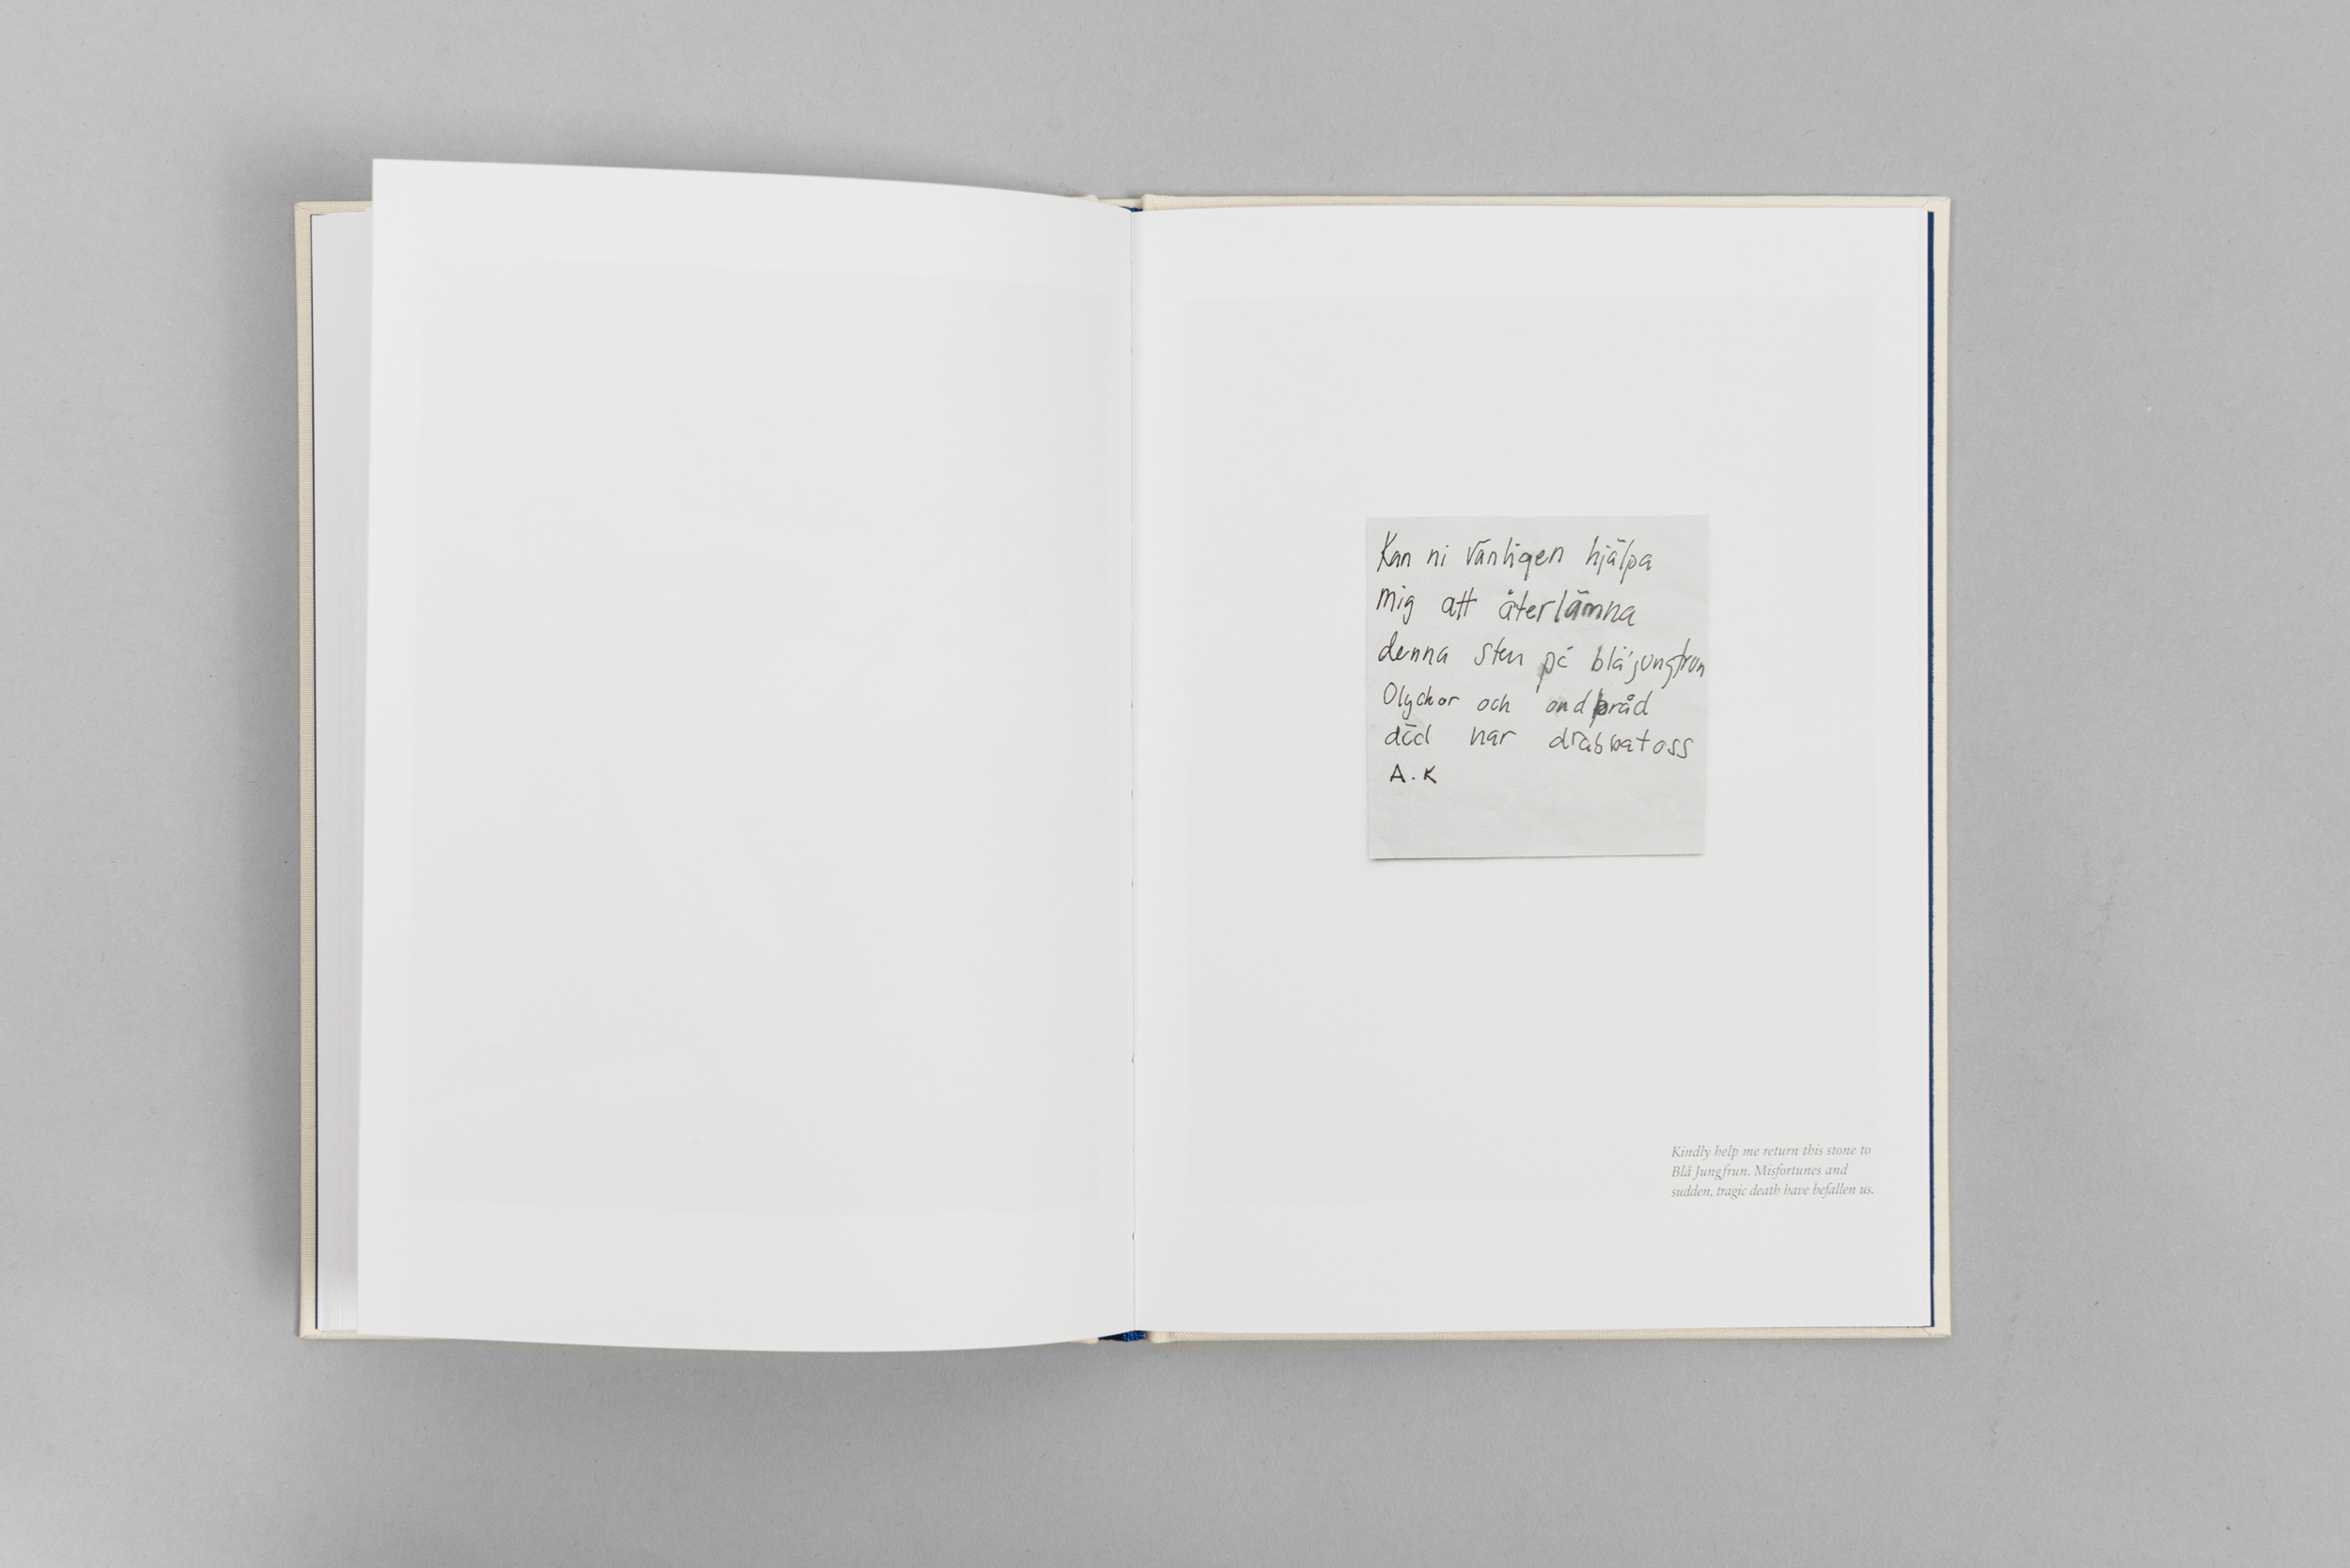 Kan ni vänligen hjälpa
mig att återlämna
denna sten på blå jungfrun
Olyckor och ond bråd
död har drabbat oss
A.K
Kindly help me return this stone to
Blå Jungfrun. Misfortunes and
sudden, tragic death have befallen us.